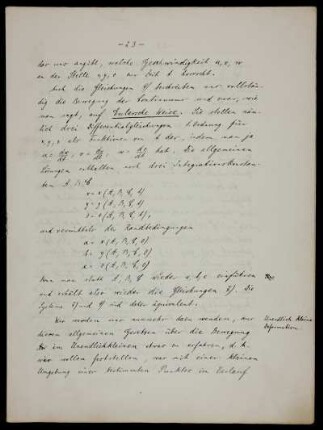 - 23 -
der uns angibt, welche Geschwindigkeit u, v, w
an der Stelle x, y, z zur Zeit t herrscht.
Auch die Gleichungen 4) beschreiben nun vollstän-
dig die Bewegung des Continuums und zwar, wie
man sagt, auf Eulersche Weise. Sie stellen näm-
lich drei Differentialgleichungen 1. Ordnung für
x, y, z als Funktionen von t dar, indem man ja
u = dx/dt, v = dy/dt, w = dz/dt hat. Die allgemeinen
Lösungen enthalten noch drei Integrationskonstan-
ten A, B, C
x = x (A, B, C, t)
y = y (A, B, C, t)
z = z (A, B, C, t),
und vermittels der Randbedingungen
a = x (A, B, C, 0)
b = y (A, B, C, 0)
c = z (A, B, C, 0)
kann man statt A, B, C wieder a, b, c einführen
und erhält also wieder die Gleichungen 2). Die
Systeme 2) und 4) sind daher äquivalent.
Wir werden uns nunmehr dazu wenden, aus
diesen allgemeinen Gesetzen über die Bewegung
im Unendlichkleinen etwas zu erfahren, d. h.
wir wollen feststellen, was mit einer kleinen
Umgebung eines bestimmten Punktes im Verlauf
Unendlich kleine
Deformation.